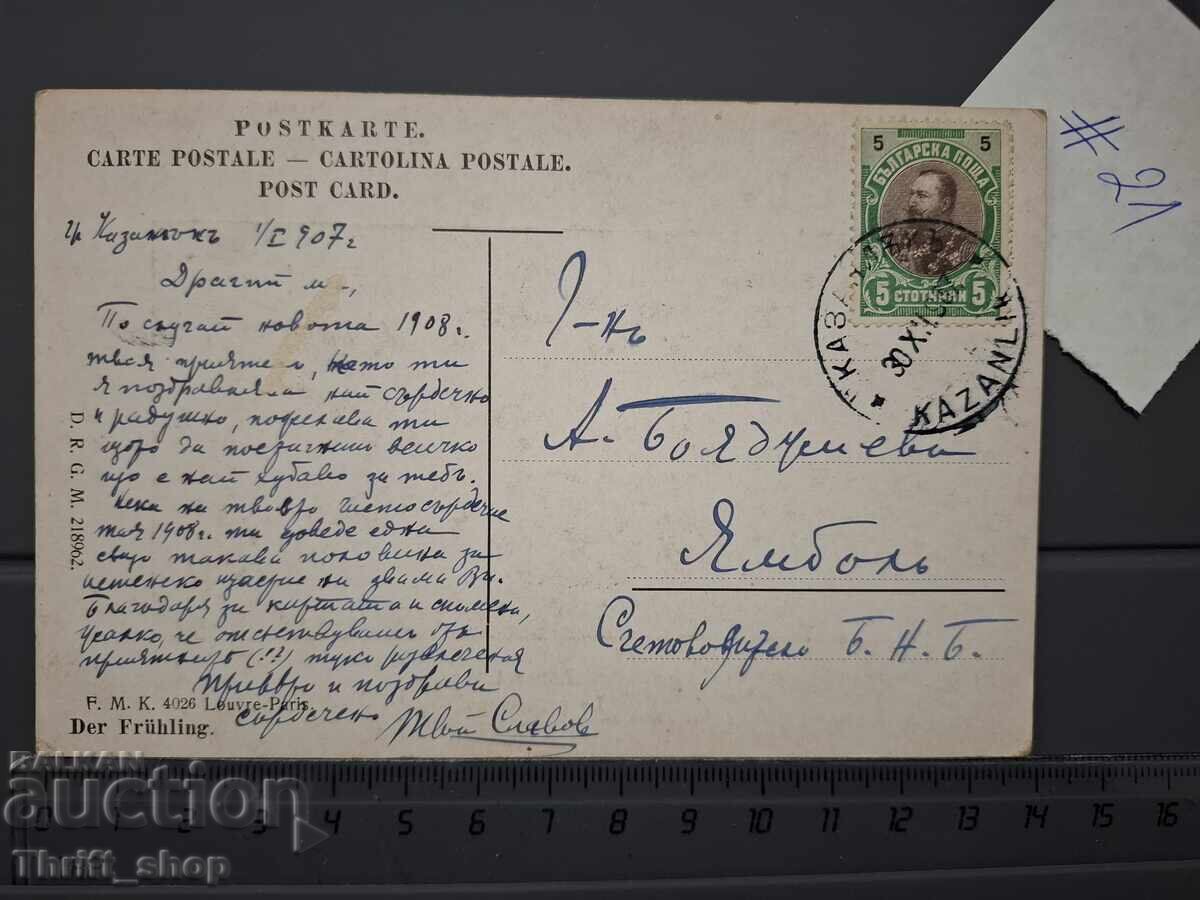 POSTKARTE.
CARTE POSTALE — CARTOLINA POSTALE.
POST CARD.
гр Казанлъкъ 1/I 907 г
Драгий м.,
По случай новата 1908 г.
твоя приятел, като ти
я поздравлява най сърдечно
и радушно, пожелава ти
скоро да постигнеш всичко
що е най хубаво за тебъ.
Нека на твоето чистосърдечие
тая 1908 г. ти доведе една
също такава половина за
щастие на двама Ви.
Благодаря за картата и спомена,
жалко, че отсъствувашъ отъ
приятнитѣ (!?) тукъ развлечения
Привет и поздрави
сърдеченъ Твой Славовъ
D. R. G. M. 218962.
F. M. K. 4026 Louvre-Paris.
Der Frühling.
5 5
БЪЛГАРСКА ПОЩА
5 СТОТИНКИ 5
КАЗАНЛЪКЪ
30 XII
KAZANLIK
Г-нъ
А. Бояджиевъ
Ямболъ
Счетоводителъ Б. Н. Б.
# 21
BALKAN
auction
Thrift_shop
0 1 2 3 4 5 6 7 8 9 10 11 12 13 14 15 16